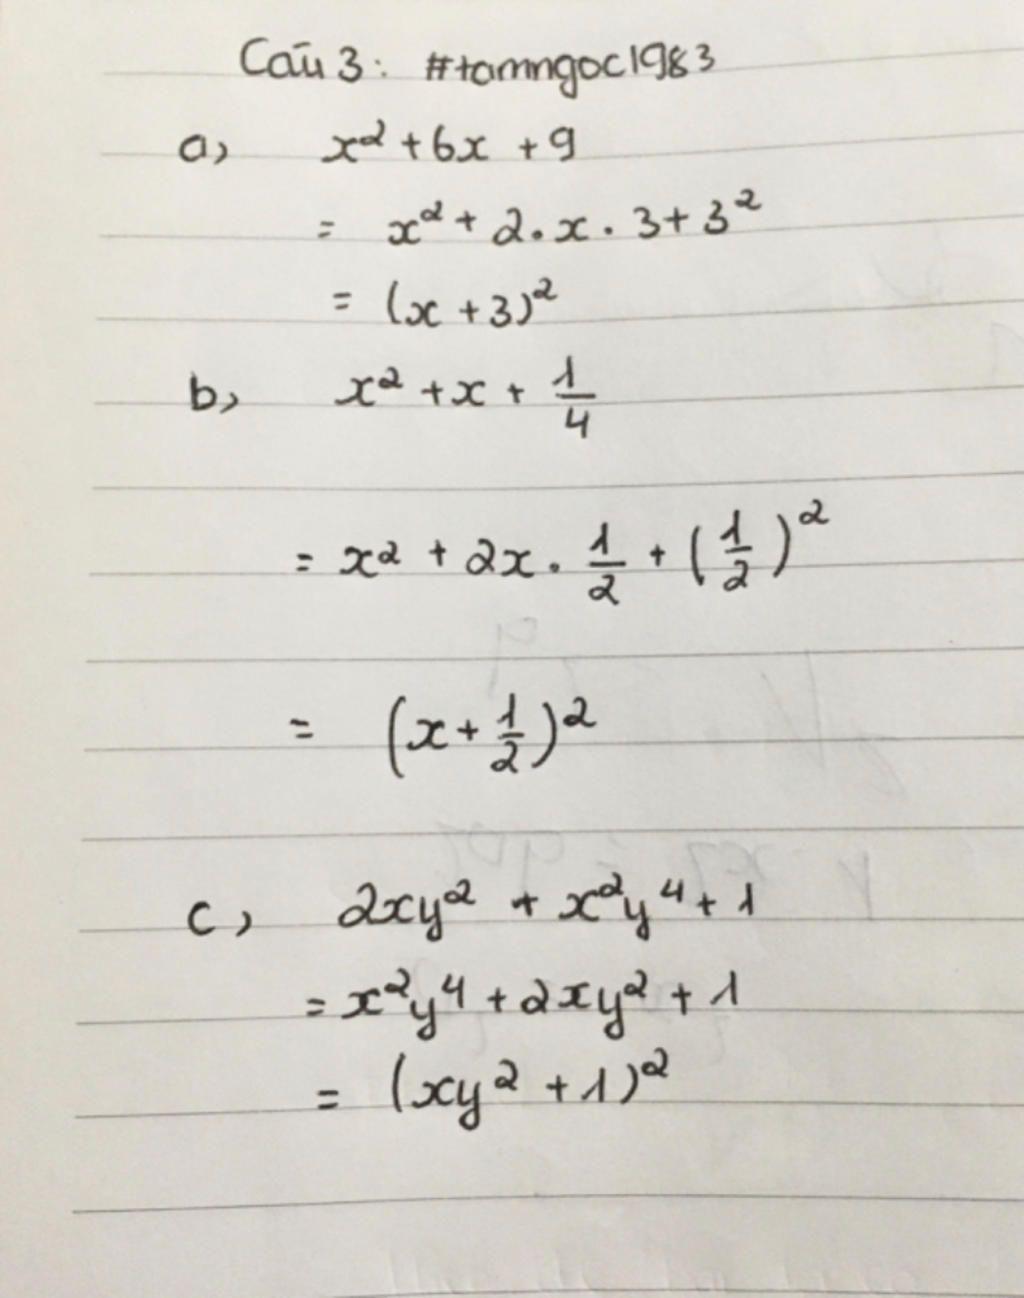 Câu 3: #tamngoc1983
a, x² + 6x + 9
= x² + 2.x.3 + 3²
= (x + 3)²
b, x² + x + 1/4
= x² + 2x . 1/2 + (1/2)²
= (x + 1/2)²
c, 2xy² + x²y⁴ + 1
= x²y⁴ + 2xy² + 1
= (xy² + 1)²